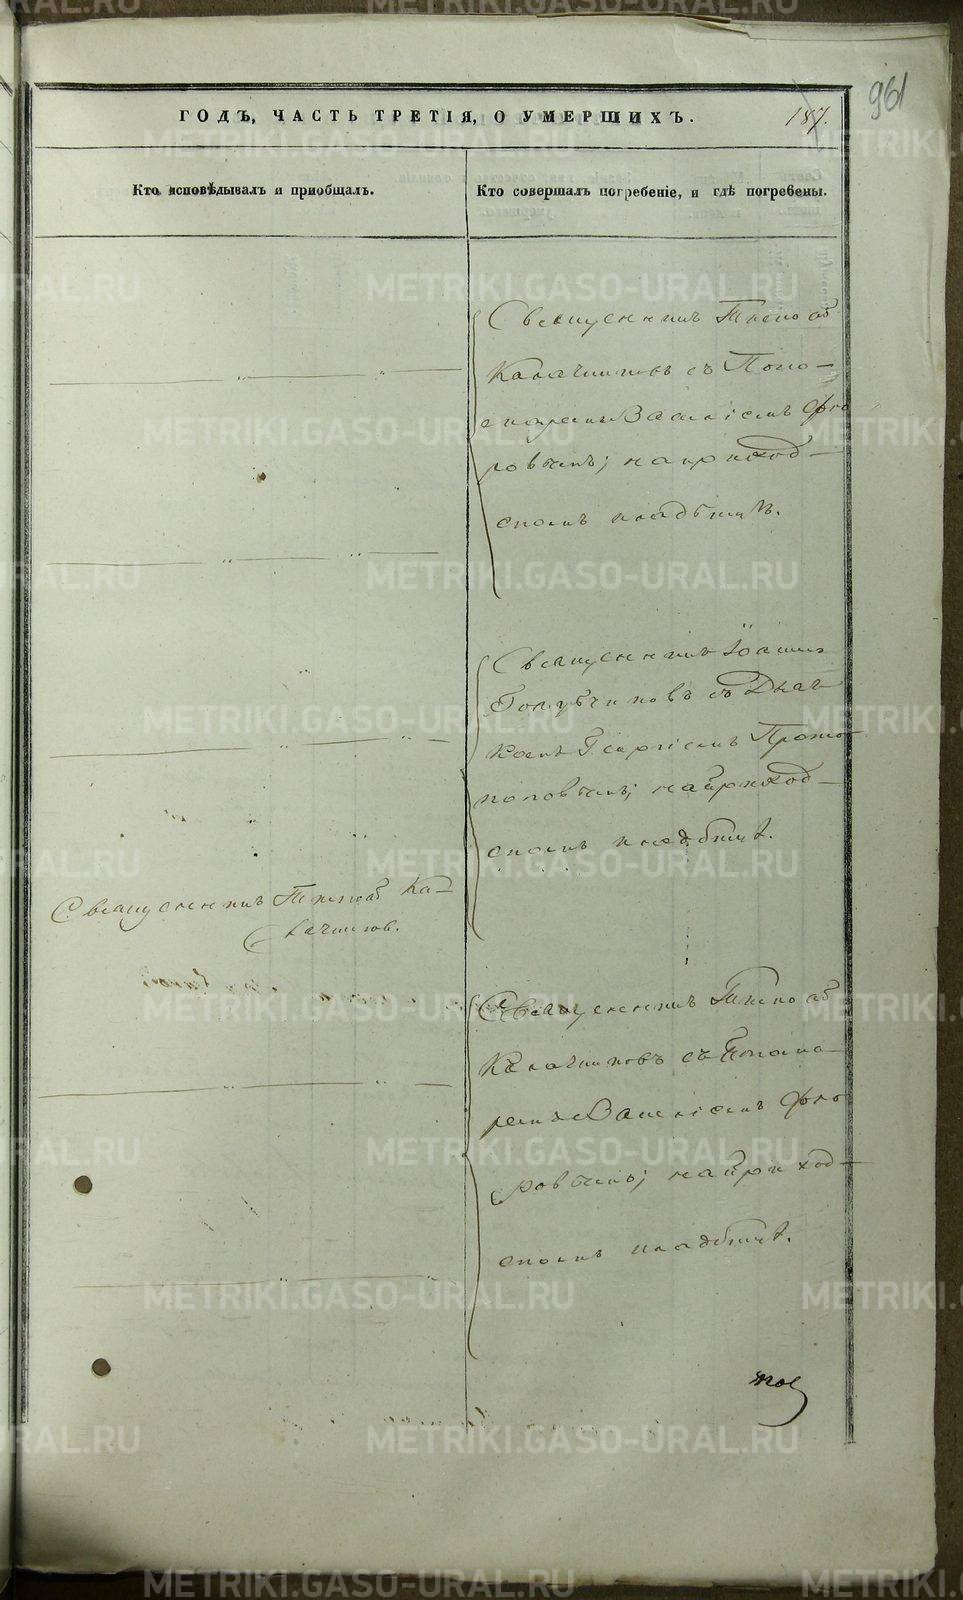 961
ГОДЪ, ЧАСТЬ ТРЕТІЯ, О УМЕРШИХЪ.
187.
Кто исповѣдывалъ и приобщалъ.
Кто совершалъ погребеніе, и гдѣ погребены.
Священникъ Тимоѳей
Калачниковъ съ Поно-
маремъ Василіемъ Фло
ровымъ; на приход-
скомъ кладбищѣ.
Священникъ Іоаннъ
Голубчиковъ съ Діа-
кономъ Георгіемъ Прото-
поповымъ; на приход-
скомъ кладбищѣ.
Священникъ Тимоѳей Ка-
лачниковъ.
Священникъ Тимоѳей
Калачниковъ съ Понома-
ремъ Василіемъ Фло
ровымъ; на приход-
скомъ кладбищѣ.
METRIKI.GASO-URAL.RU